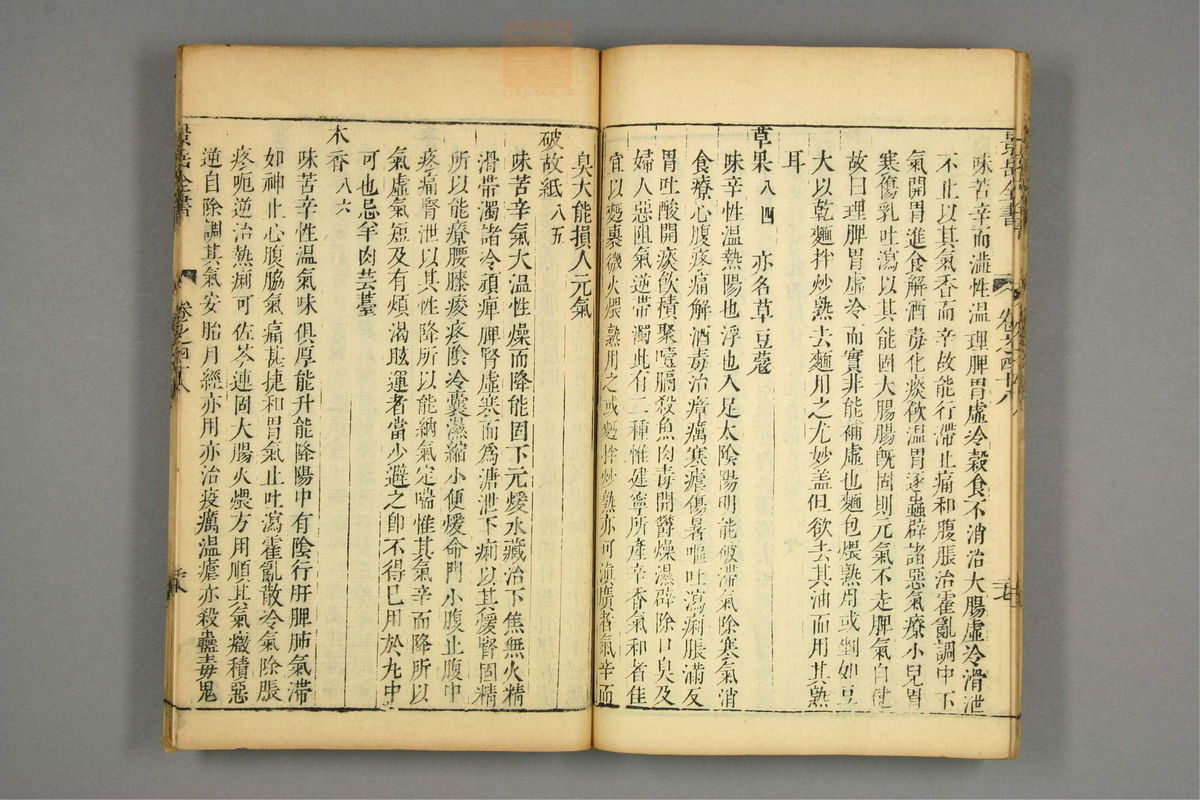 景岳全書
卷之四十八
味苦辛而澁性溫理脾胃虛冷穀食不消治大腸虛冷滑泄
不止以其氣香而辛故能行滯止痛和腹脹治霍亂調中下
氣開胃進食解酒毒化痰飲溫胃逐蟲辟諸惡氣療小兒胃
寒傷乳吐瀉以其能固大腸腸旣固則元氣不走脾氣自健
故曰理脾胃虛冷而實非能補虛也麵包煨熟用或剉如豆
大以乾麵拌炒熟去麵用之尤妙盖但欲去其油而用其熟
耳
草果八四 亦名草豆蔻
味辛性溫熱陽也浮也入足太陰陽明能破滯氣除寒氣消
食療心腹疼痛解酒毒治瘴癘寒瘧傷暑嘔吐瀉痢脹滿反
胃吐酸開痰飲積聚噎膈殺魚肉毒開鬱燥濕辟除口臭及
婦人惡阻氣逆帶濁此有二種惟建寧所產辛香氣和者佳
宜以麪裹微火煨熟用之或麪拌炒熟亦可滇廣者氣辛而
臭大能損人元氣
破故紙八五
味苦辛氣大溫性燥而降能固下元煖水藏治下焦無火精
滑帶濁諸冷頑痺脾腎虛寒而爲溏泄下痢以其煖腎固精
所以能療腰膝痠疼陰冷囊濕縮小便煖命門小腹止腹中
疼痛腎泄以其性降所以能納氣定喘惟其氣辛而降所以
氣虛氣短及有煩渴眩運者當少避之卽不得已用於丸中
可也忌羊肉芸薹
木香八六
味苦辛性溫氣味俱厚能升能降陽中有陰行肝脾肺氣滯
如神止心腹脇氣痛甚捷和胃氣止吐瀉霍亂散冷氣除脹
疼呃逆治熱痢可佐芩連固大腸火煨方用順其氣癥積惡
逆自除調其氣安胎月經亦用亦治疫癘溫瘧亦殺蠱毒鬼
景岳全書
卷之四十八